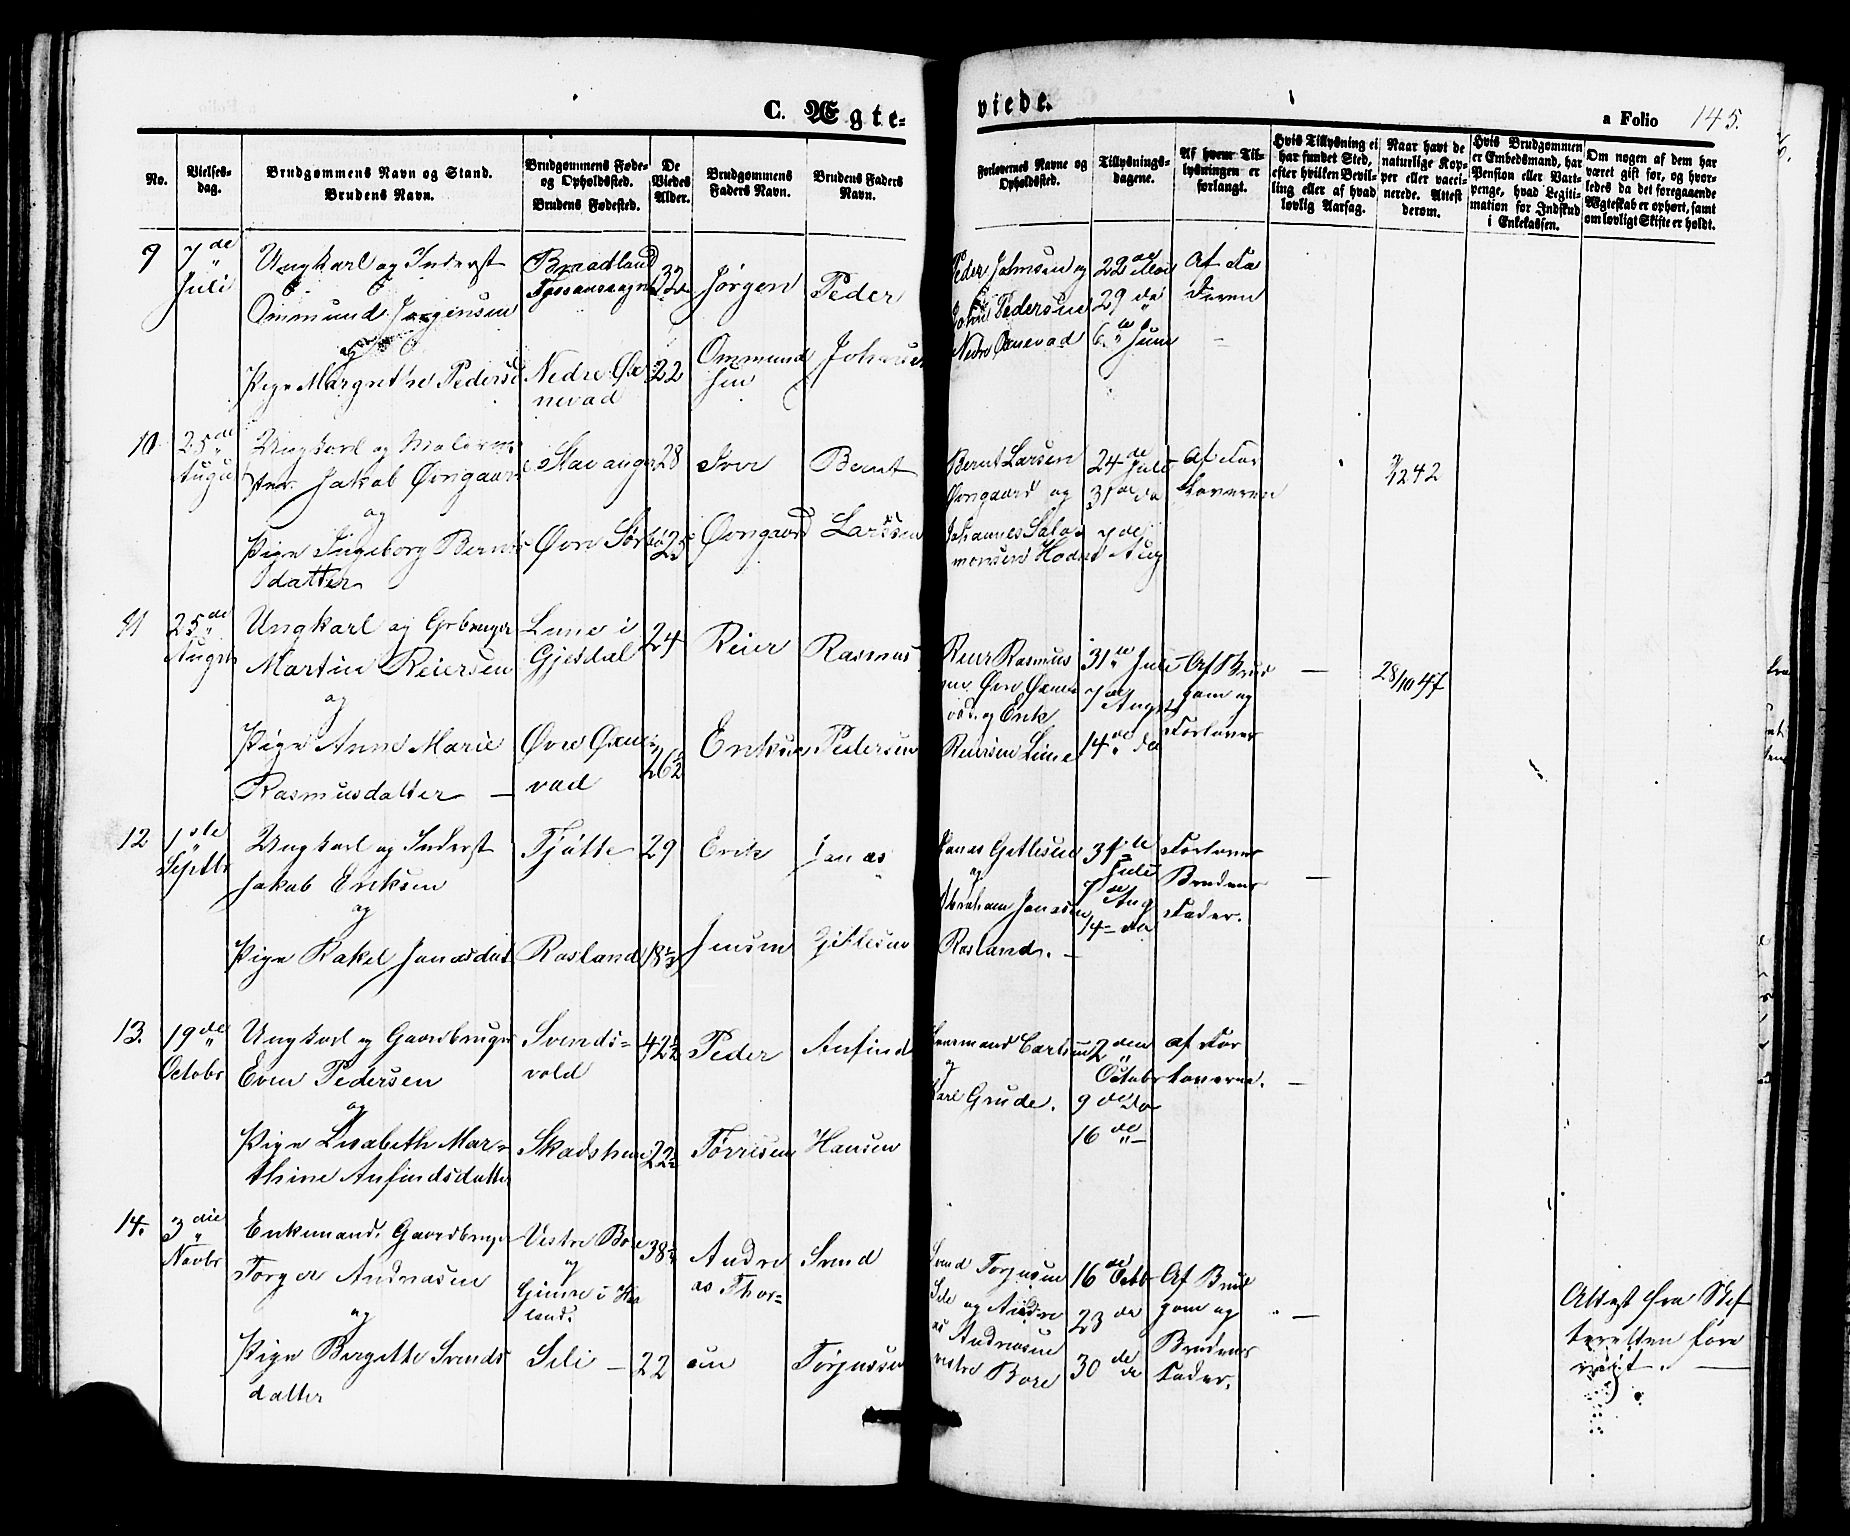 C. Ægte=
viede.
a Folio 145.
No.
Vielses=
dag.
Brudgommens Navn og Stand.
Brudens Navn.
Brudgommens Føde=
og Opholdssted.
Brudens Fødested.
De
Viedes
Alder.
Brudgommens
Faders Navn.
Brudens Faders
Navn.
Forlovernes Navne og
Opholdssted.
Tillysnings-
dagene.
Af hvem Til-
lysningen er
forlangt.
Hvis Tillysning ei
har fundet Sted,
efter hvilken Bevil-
ling eller af hvad
lovlig Aarsag.
Naar havt de
naturlige Kop-
per eller vacci-
nerede. Attest
derom.
Hvis Brudgommen
er Embedsmand, har
Pension eller Vart-
penge, hvad Legiti-
mation for Indskud
i Enkekassen.
Om nogen af dem har
været gift før, og hvor-
ledes da det foregaaende
Ægteskab er ophørt, samt
om lovligt Skifte er holdt.
9
7de
Juli
Ungkarl og Inderst
Ommund Jørgensen
og
Pige Margret
Braadland
Nedre Øx
nevad
32
22
Jørgen
Ommund
sen
Peder
Johnsen
Peder Johnsen og
John Pedersen
Nedre Øxnevad
22de Mai
29 de
6te Juni
Af Fa
deren
10
25de
Augu
Ungkarl og Malerme
ster Jakob Øvrgaard
og
Pige Ingeborg Bernts
datter
Stavanger
Øvre Sørbø
28
25
Iver
Øvrgaard
Bernt
Larssen
Bernt Larsen
Øvrgaard og
Johannes Salo
monsen Hodne
24de Juli
31de do
7de
Aug
Af For
loveren
11
25de
Augst
Ungkarl og Grbruger
Martin Reiersen
og
Pige Anne Marie
Rasmusdatter —
Lime i
Gjesdal
Øvre Øxne=
vad
24
26½
Reier
Eriksen
Rasmus
Pedersen
Reier Rasmus
sen Øvre Øxne
vad og Erik
Reiersen Lime
31te Juli
7de Augst
14de do
Af Brud
gom og
Forlover
—
28/10 47
12
1ste
Septbr
Ungkarl og Inderst
Jakob Eriksen
og
Pige Rakel Jonasdat
Tjøtte
Rosland
29
Erik
Jensen
Jonas
Gitlesen
Jonas Gitlesen
og
Abraham Jonassen
Rosland. —
31te
Juli
7de Aug
14— do
Forlover
Brudens
Fader.
—
13.
19de
Octobr
Ungkarl og Gaardbruger
Even Pedersen
og
Pige Lisabeth Mar=
thine Anfindsdatter
Svends=
vold
Skadsheim
42½
22½
Peder
Tørresen
Anfind
Hansen
Lensmand Carlsen
og
Karl Grude.
2den
Octobr
9de do
16de —
af For
loverne.
—
14.
3die
Novbr
Enkemand, Gaardbruger
Torger Andreasen
og
Pige Bergitte Svends
datter
Vestre Bore
og
Gjenre i Haa
land.
Seli —
38½
22
Andre
as Thor=
sen
Svend
Torjussen
Svend Torjusen
Sele og Andre
as Andreasen
vestre Bore
16de Octb
23 de
30 de
Af Brud
gom og
Brudens
Fader.
—
Attest fra Skif
teretten fore
vist. —